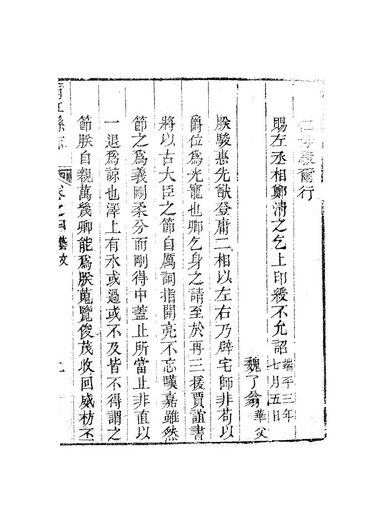 賜左丞相鄭清之乞上印綬不允詔 端平三年七月五日
魏了翁 華父
朕駿惠先猷登庸二相以左右乃辟宅師非苟以
爵位爲光寵也卿乞身之請至於再三援賈誼書
將以古大臣之節自厲詞指開亮不忘嘆嘉雖然
節之爲義剛柔分而剛得中蓋止所當止非直以
一退爲諒也澤上有水或過或不及皆不得謂之
節朕自親萬幾卿能爲朕蒐覽俊茂收回威枋丕
卷之四藝文